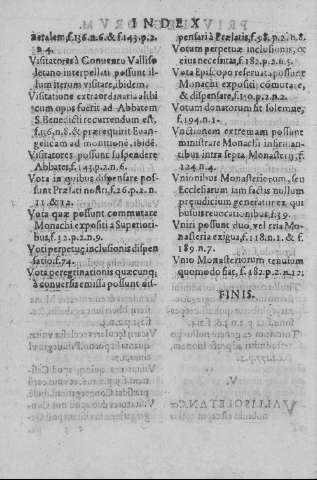 INDEX
ætalem, f. 136. n. 6. & f. 143. p. 2.
n 4.
Visitatores à Conventu Vallisoletano
letano interpellati possunt il-
lum iterum visitare, ibidem.
Visitatione extraordinaria alibi
cum opus fuerit ad Abbatem
S. Benedicti recurrendum est,
f. 136. n. 8. & prærequirit Evan-
gelicam ad monitione, ibidē.
Visitatores possunt suspendere
Abbates, f. 143. p. 2. n. 6.
Vota in quibus dispensare pos-
sunt Prælati nostri, f. 26. p. 2. n.
11 & 12.
Vota quæ possunt commutare
Monachi expositi à Superiori-
bus, f. 32. p. 2. n. 9.
Voti perpetuæ inclusionis dispen
satio, f. 74.
Vota peregrinationis quæcunq;
à conversis emissa possunt dis-
pensari à Prælatis, f. 98. p. 2. n. 8.
Votum perpetuæ inclusionis, &
eius necessitas, f. 182. p. 2. n. 5.
Vota Episcopo reservata possunt
Monachi expositi cōmutare,
& dispensare, f. 130. p. 2. n. 2.
Votum donatorum sit solemne,
f. 194. n. 1.
Vnctionem extremam possunt
ministrare Monachi infirman-
tibus intra septa Monasterij, f.
124. n. 4.
Vnionibus Monasteriorum, seu
Ecclesiarum iam factis nullum
præiudicium generatur ex qui
busuis revocationibus, f. 39.
Vniri possunt duo, vel tria Mo-
nasteria exigua, f. 118. n. 1. & f.
189. n. 7.
Vnio Monasteriorum tenuium
quomodo fiat, f. 182. p. 2. n. 12;
FINIS.